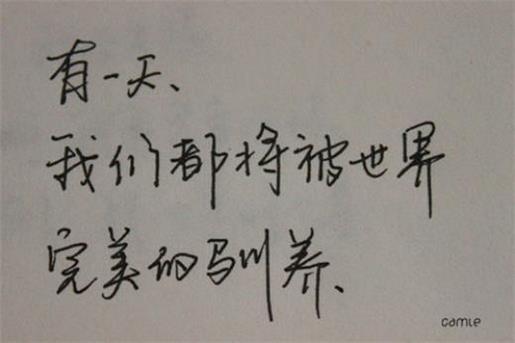 有一天、
我们都将被世界
完美的驯养、
camie